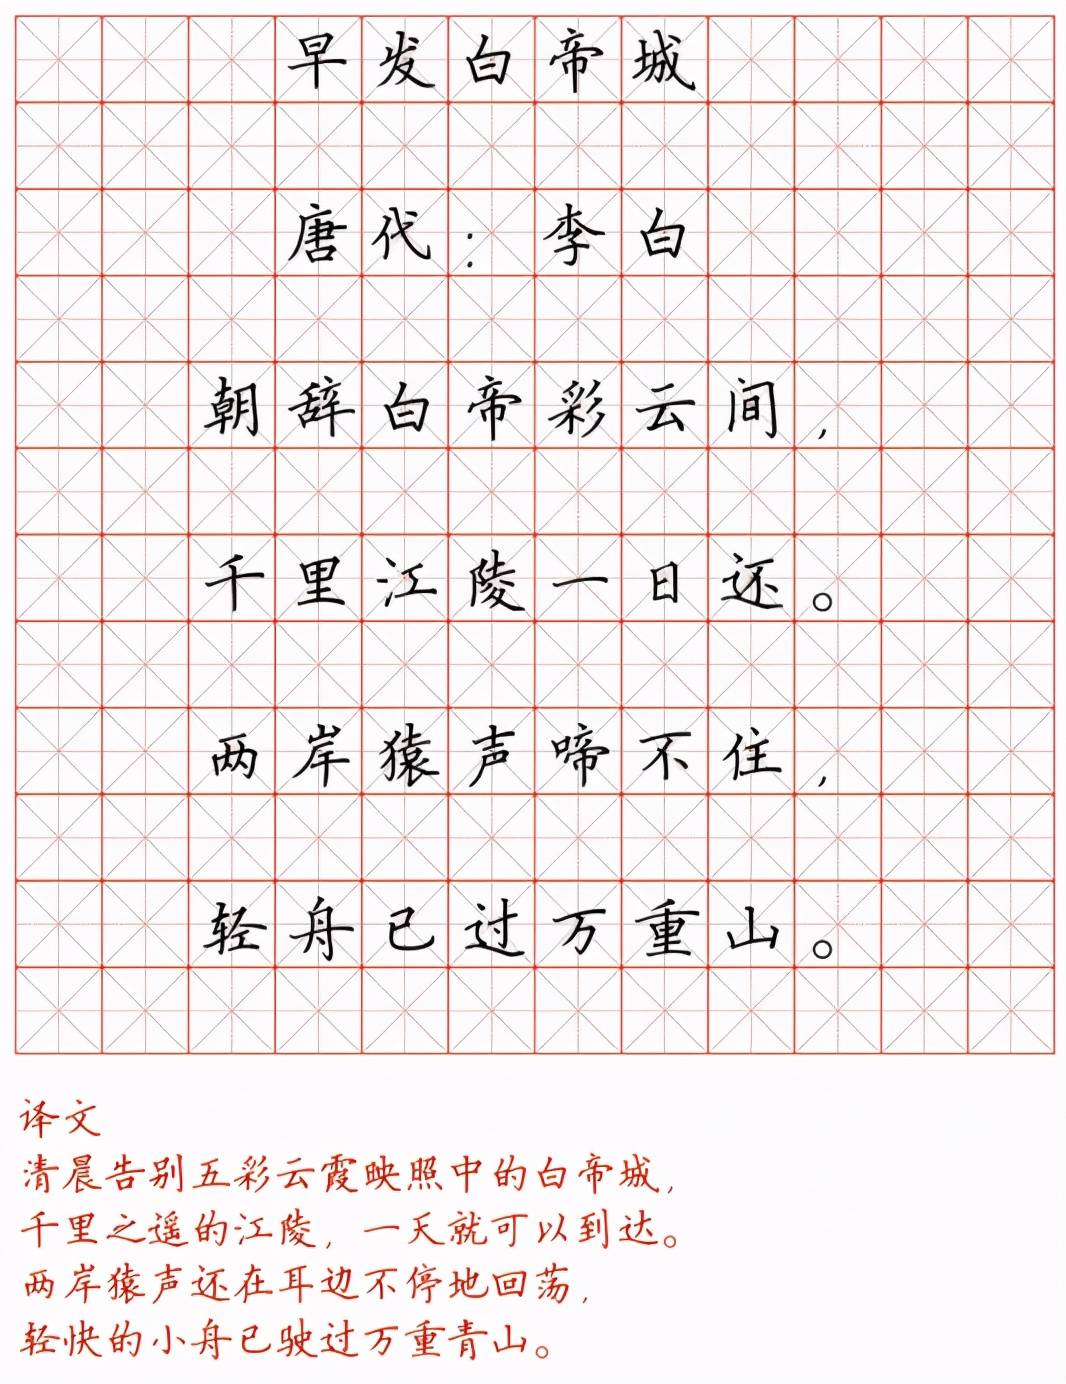 早发白帝城
唐代：李白
朝辞白帝彩云间，
千里江陵一日还。
两岸猿声啼不住，
轻舟已过万重山。
译文
清晨告别五彩云霞映照中的白帝城，
千里之遥的江陵，一天就可以到达。
两岸猿声还在耳边不停地回荡，
轻快的小舟已驶过万重青山。